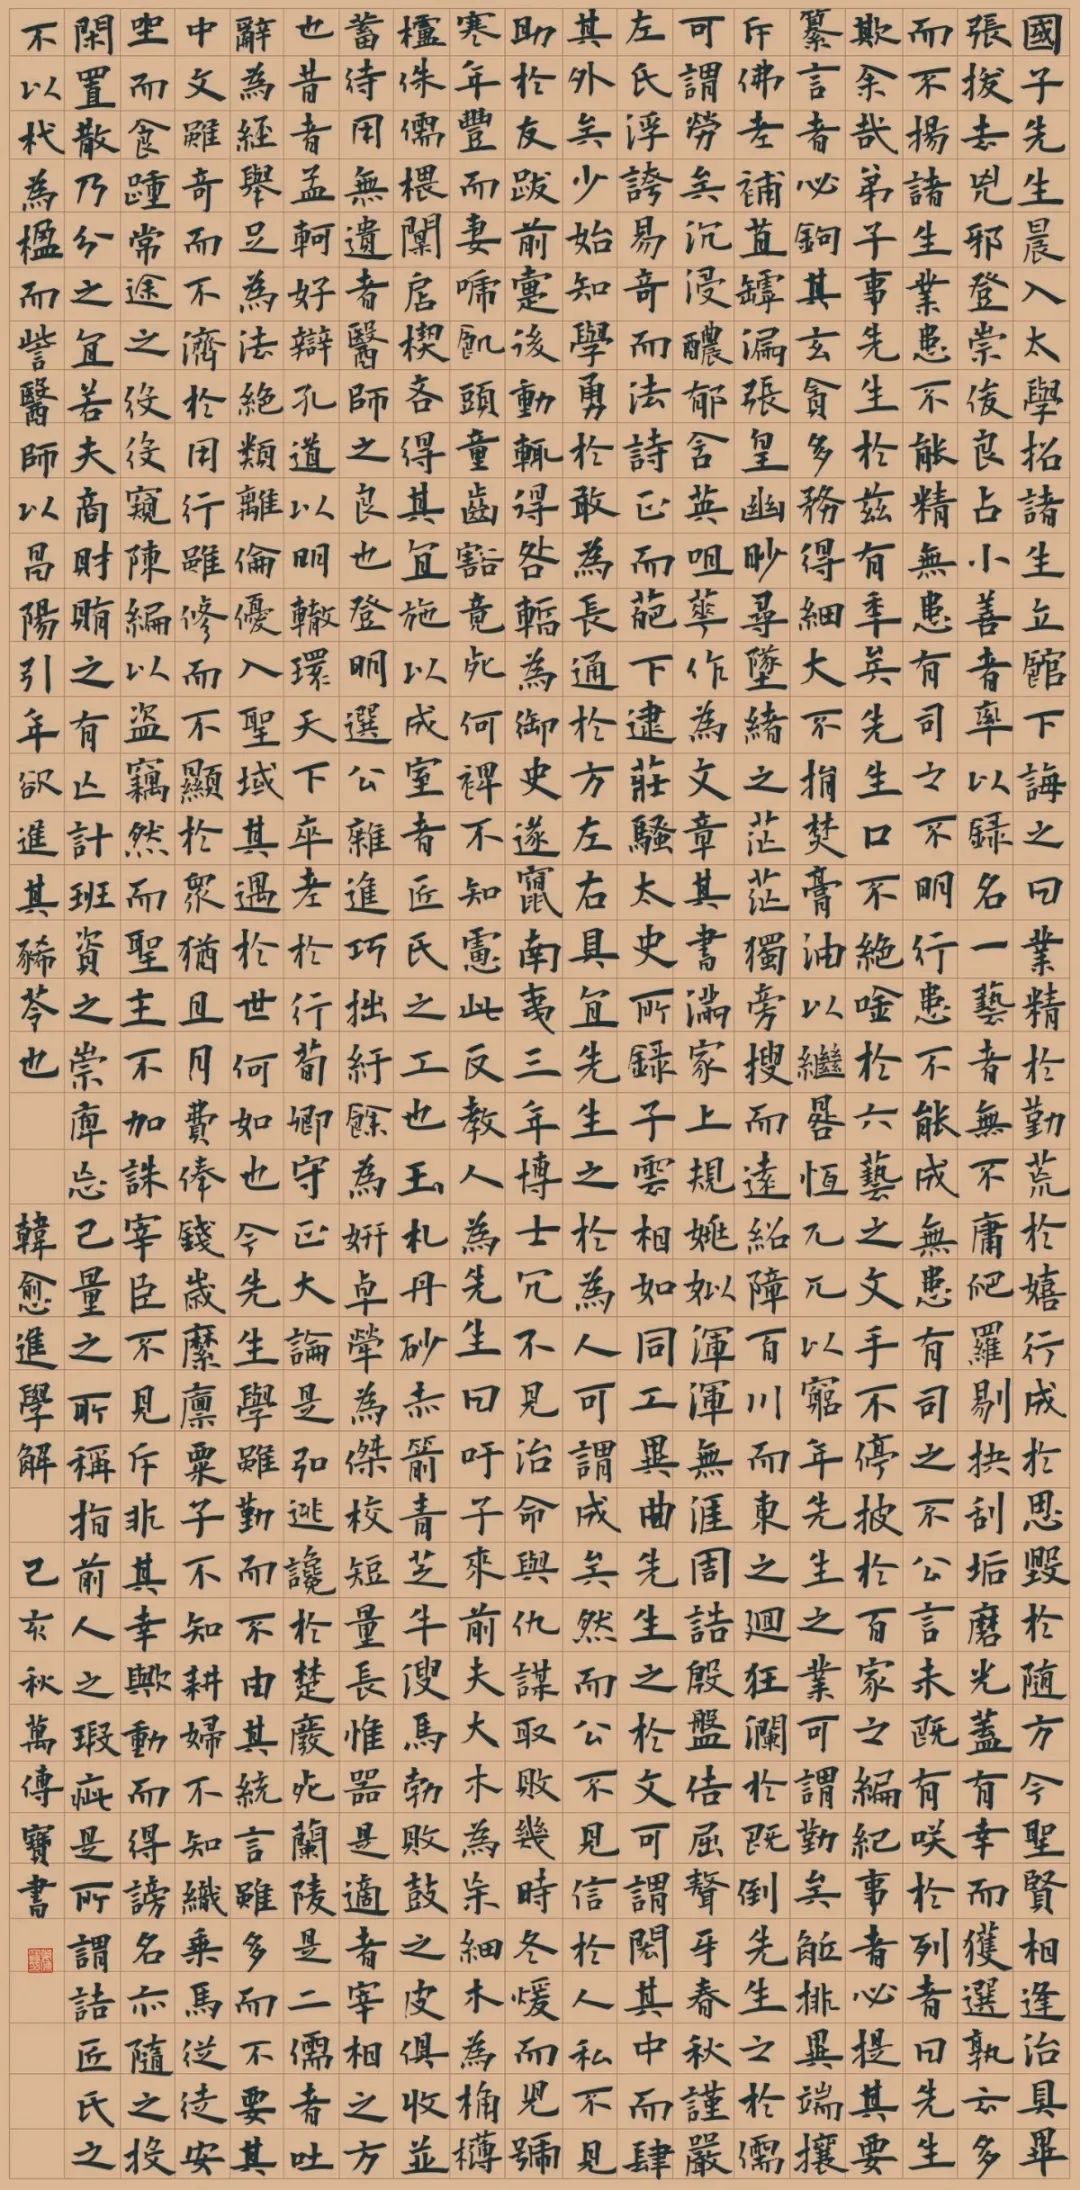 國子先生晨入太學招諸生立館下誨之曰業精於勤荒於嬉行成於思毀於隨方今聖賢相逢治具畢
張拔去兇邪登崇俊良占小善者率以錄名一藝者無不庸爬羅剔抉刮垢磨光蓋有幸而獲選孰云多
而不揚諸生業患不能精無患有司之不明行患不能成無患有司之不公言未既有咲於列者曰先生
欺余哉弟子事先生於茲有季矣先生口不絕唫於六藝之文手不停披於百家之編紀事者必提其要
纂言者必鉤其玄貪多務得細大不捐焚膏油以繼晷恒兀兀以窮年先生之業可謂勤矣觝排異端攘
斥佛老補苴罅漏張皇幽眇尋墜緒之茫茫獨旁搜而遠紹障百川而東之迴狂瀾於既倒先生之於儒
可謂勞矣沉浸醲郁含英咀華作為文章其書滿家上規姚姒渾渾無涯周誥殷盤佶屈聱牙春秋謹嚴
左氏浮誇易奇而法詩正而葩下逮莊騷太史所錄子雲相如同工異曲先生之於文可謂閎其中而肆
其外矣少始知學勇於敢為長通於方左右具宜先生之於為人可謂成矣然而公不見信於人私不見
助於友跋前疐後動輒得咎暫為御史遂竄南夷三年博士冗不見治命與仇謀取敗幾時冬煖而兒號
寒年豐而妻啼飢頭童齒豁竟死何裨不知慮此反教人為先生曰吁子來前夫大木為杗細木為桷欂
櫨侏儒椳闑扂楔各得其宜施以成室者匠氏之工也玉札丹砂赤箭青芝牛溲馬勃敗鼓之皮俱收並
蓄待用無遺者醫師之良也登明選公雜進巧拙紆餘為妍卓犖為傑校短量長惟器是適者宰相之方
也昔者孟軻好辯孔道以明轍環天下卒老於行荀卿守正大論是弘逃讒於楚廢死蘭陵是二儒者吐
辭為經舉足為法絕類離倫優入聖域其遇於世何如也今先生學雖勤而不由其統言雖多而不要其
中文雖奇而不濟於用行雖修而不顯於眾猶且月費俸錢歲縻廩粟子不知耕婦不知織乘馬從徒安
坐而食踵常途之役役窺陳編以盜竊然而聖主不加誅宰臣不見斥非其幸歟動而得謗名亦隨之投
閑置散乃分之宜若夫商財賄之有亡計班資之崇庳忘己量之所稱指前人之瑕疵是所謂詰匠氏之
不以杙為楹而訾醫師以昌陽引年欲進其豨苓也 韓愈進學解 己亥秋萬傳寶書